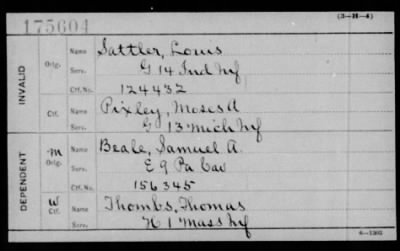 175604
(3-H-4)
INVALID
Orig.
Name Sattler, Louis
Serv. G 14 Ind Inf
Ctf. No. 124432
Ctf.
Name Pixley, Moses A
Serv. G 13 Mich Inf
DEPENDENT
M
Orig.
Name Beale, Samuel A.
Serv. E 9 Pa Cav
Ctf. No. 156345
W
Ctf.
Name Thombs, Thomas
Serv. H 1 Mass Inf